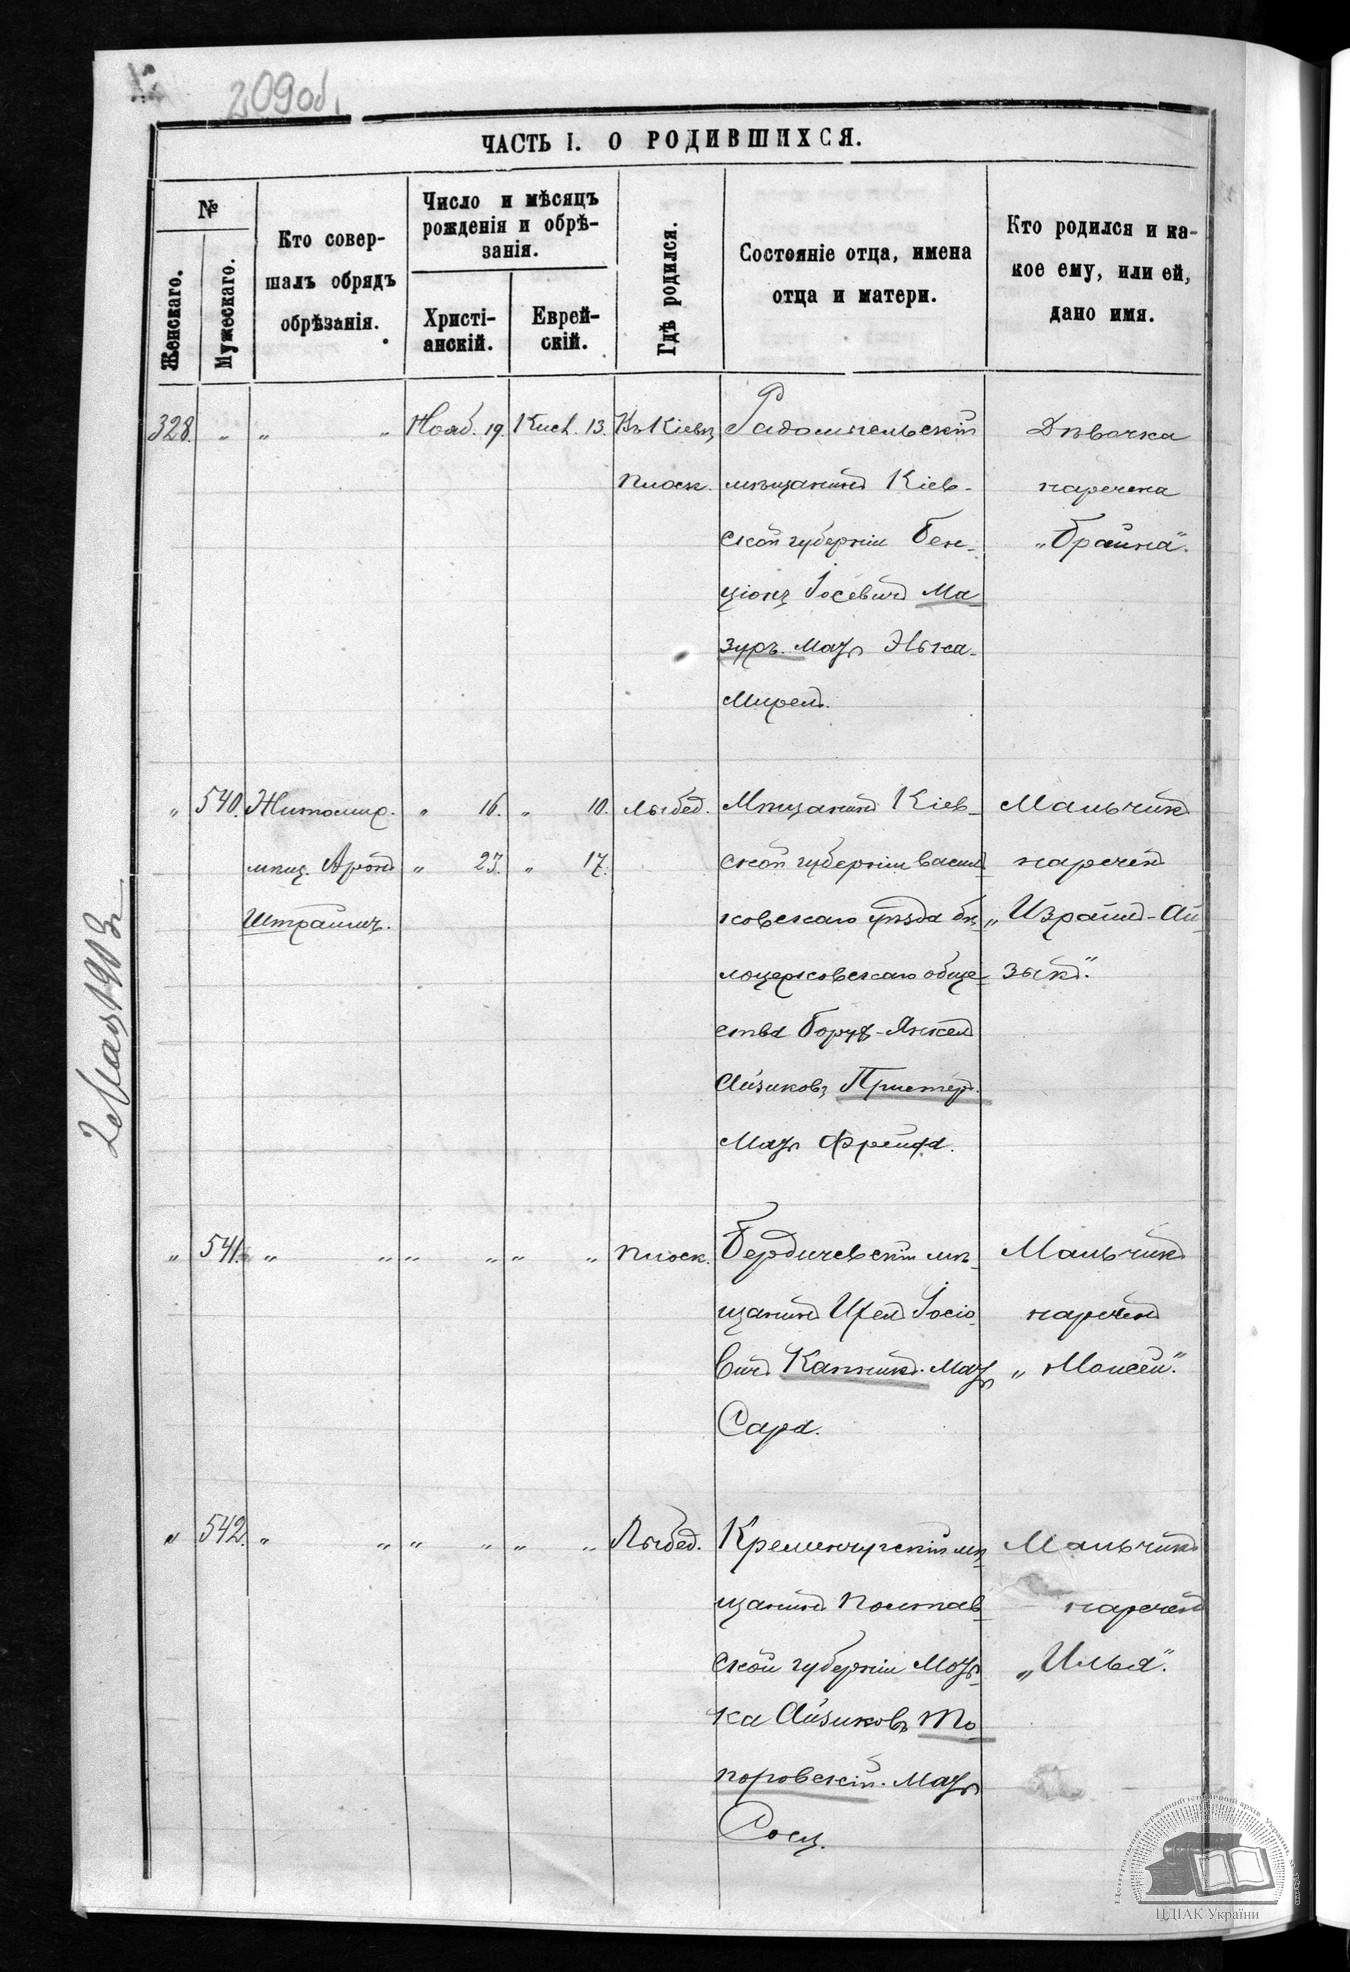 209 об.
ЧАСТЬ I. О РОДИВШИХСЯ.
№
Женскаго.
Мужескаго.
Кто совер-
шалъ обрядъ
обрѣзанія.
Число и мѣсяцъ
рожденія и обрѣ-
занія.
Христі-
анскій.
Еврей-
скій.
Гдѣ родился.
Состояніе отца, имена
отца и матери.
Кто родился и ка-
кое ему, или ей,
дано имя.
328. " " " Нояб. 19. Кисл. 13. Въ Кіевѣ
Плоск.
Радомысльскій
мѣщанинъ Кіев-
ской губерніи Бен-
ціонъ Іосевичъ Ма-
зуръ. Мать Элька-
Мирел.
Дѣвочка
наречена
„Брайна“.
" 540. Житомир. " 16. " 10. Лыбед.
мѣщ. Аронъ " 23. " 17.
Штрамъ.
Мѣщанинъ Кіев-
ской губерніи Василь
ковскаго уѣзда бѣ-
лоцерковскаго обще-
ства Борух-Янкел
Айзиковъ Пристер.
Мать Фрейда.
Мальчикъ
наречен
„Израил-Ай-
зык“.
" 541. " " " " " " Плоск.
Бердичевскій мѣ-
щанинъ Ихел Іосіо-
вичъ Капникъ. Мать
Сара.
Мальчикъ
наречен
„Моисей“.
" 542. " " " " " " Лыбед.
Кременчугскій мѣ-
щанинъ Полтав-
ской губерніи Моть-
ка Айзиковъ То-
поровскій. Мать
Сося.
Мальчикъ
наречен
„Илья“.
2 Мая 1903 г.
ЦДІАК України